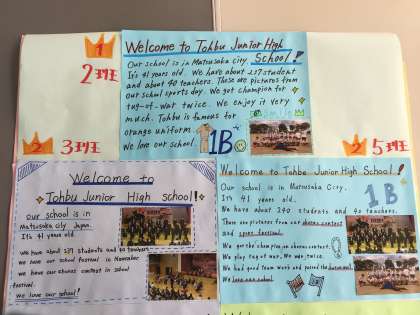 1
2班
Welcome to Tohbu Junior High
School!
Our school is in Matsusaka city.
It's 41 years old. We have about 237 student
and about 40 teachers. These are pictures from
our school sports day. We got champion for
tug-of-war twice. We enjoy it very
much. Tohbu is famous for
orange uniform.
We love our school.
Smile
1B
2
3班
Welcome to
Tohbu Junior High school!
Our school is in
Matsusaka city Japan.
It's 41 years old.
We have about 237 students and 40 teachers.
We have our school festival in November
We have our chorus contest in school
festival.
We love our school!
2
5班
Welcome to Tohbu Junior High School!
Our school is in Matsusaka City.
It is 41 years old.
1B
We have about 240 students and 40 teachers.
These are pictures from our chorus contest
and sports festival.
We got the champion chorus contest.
We play tug of war. We won twice.
We had good team work and passed the
We love our school.
Welcome